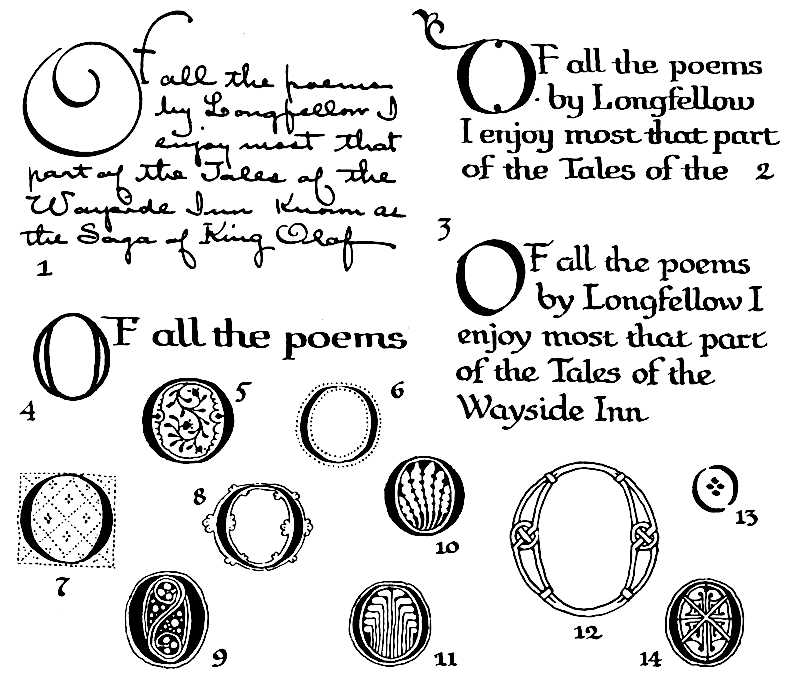 Of all the poems
by Longfellow I
enjoy most that
part of the Tales of the
Wayside Inn Known as
the Saga of King Olaf
1
OF all the poems
by Longfellow
I enjoy most that part
of the Tales of the 2
3
OF all the poems
by Longfellow I
enjoy most that part
of the Tales of the
Wayside Inn
OF all the poems
4
5
6
7
8
9
10
11
12
13
14